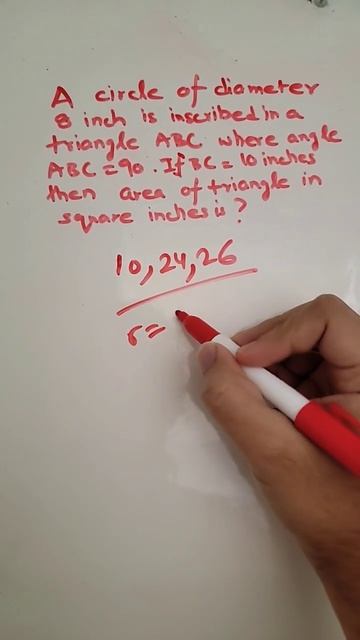 A circle of diameter
8 inch is inscribed in a
triangle ABC where angle
ABC = 90. If BC = 10 inches
then area of triangle in
square inches is ?
10, 24, 26
r =